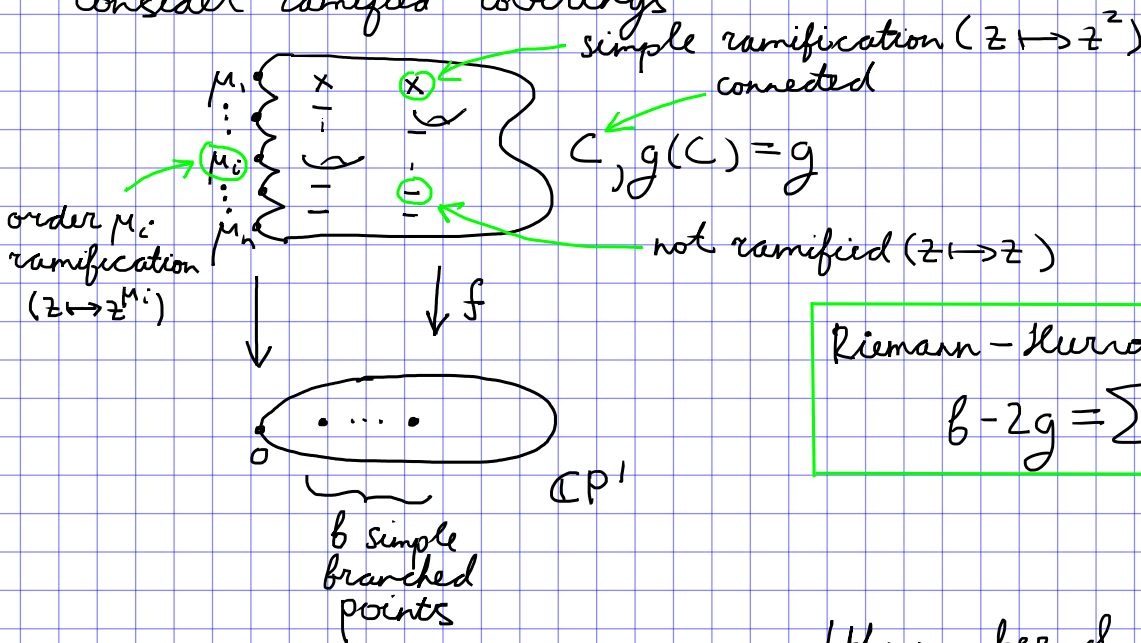 consider ramified coverings
simple ramification (z ↦ z²)
connected
μ₁
⋮
μᵢ
⋮
μₙ
C, g(C) = g
order μᵢ
ramification
(z ↦ z^μᵢ)
not ramified (z ↦ z)
f
Riemann – Hurwo
b - 2g = Σ
0
...
ℂP¹
b simple
branched
points